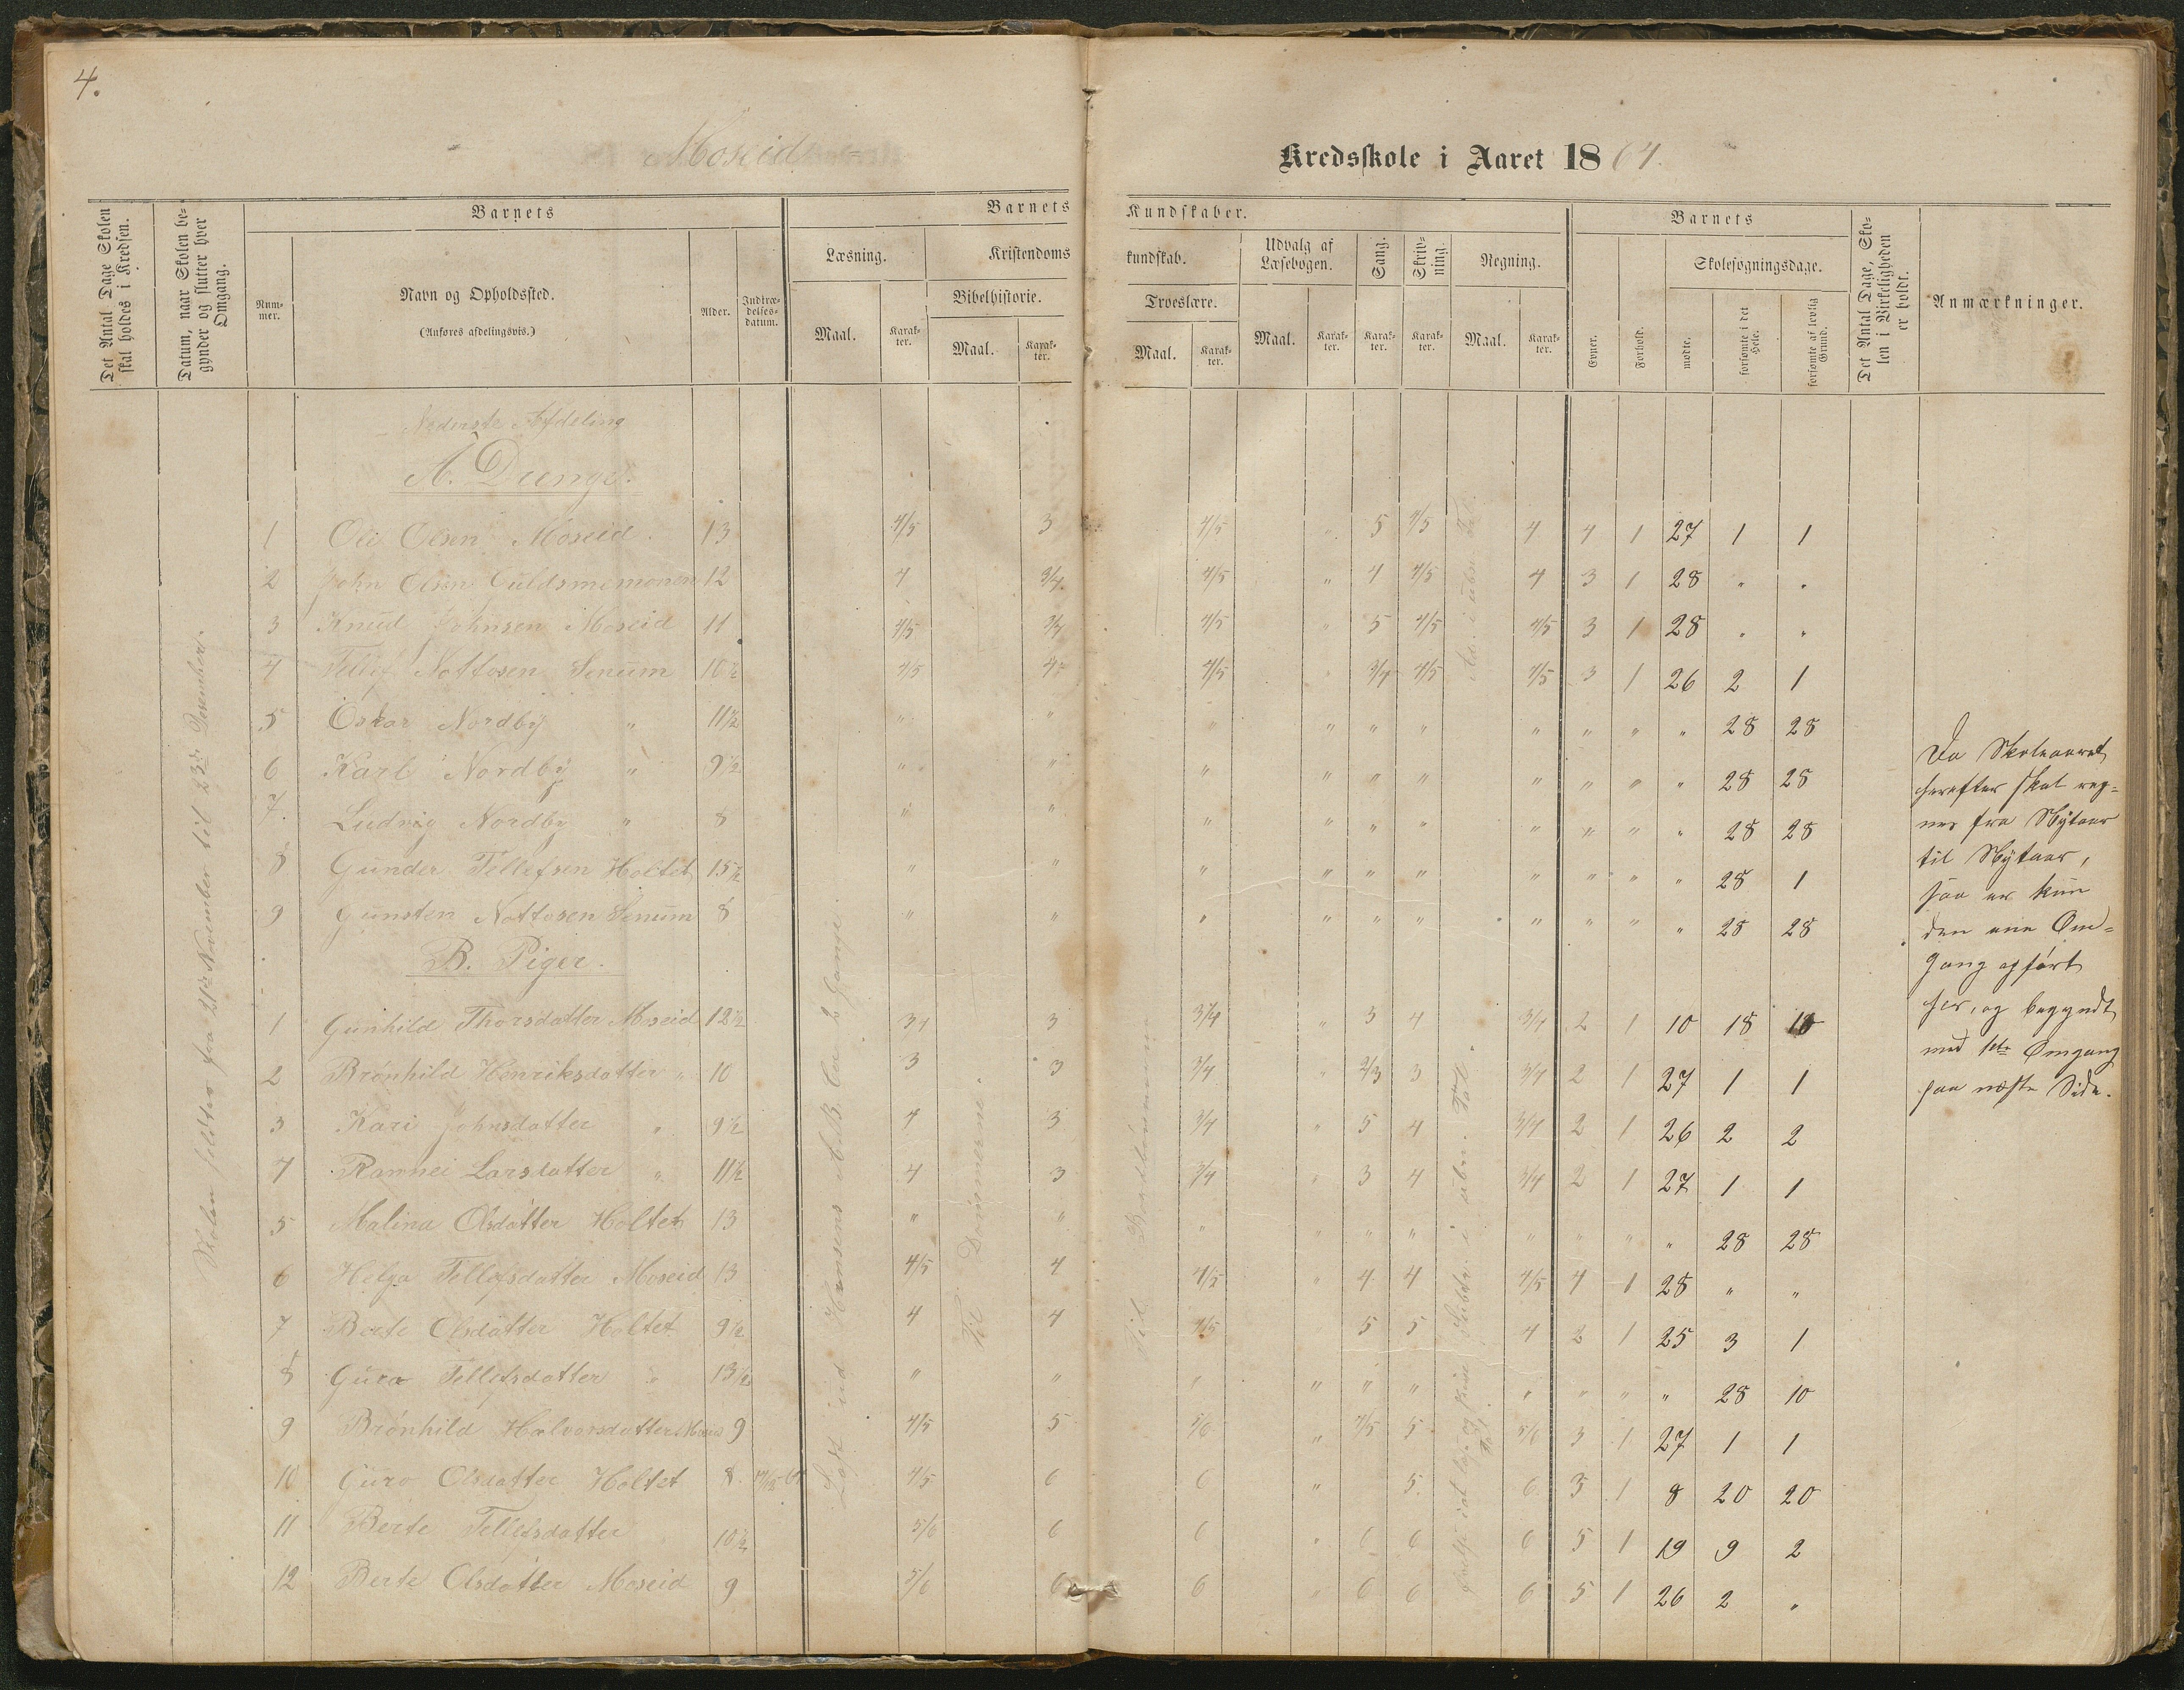 4.
Moseid
Kredsskole i Aaret 1864.
Det Antal Dage Skolen skal holdes i Kredsen.
Datum, naar Skolen begynder og slutter hver Omgang.
Barnets
Num-
mer.
Navn og Opholdssted.
(Anføres afdelingsvis.)
Alder.
Indtræ-
delses-
datum.
Barnets Kundskaber.
Læsning.
Maal.
Karak-
ter.
Kristendomskundskab.
Bibelhistorie.
Maal.
Karak-
ter.
Troeslære.
Maal.
Karak-
ter.
Udvalg af
Læsebogen.
Maal.
Karak-
ter.
Sang.
Karak-
ter.
Skriv-
ning.
Karak-
ter.
Regning.
Maal.
Karak-
ter.
Barnets
Evner.
Forhold.
Skolesøgningsdage.
mødte.
forsømte i det Hele.
forsømte af lovlig Grund.
Det Antal Dage, Skolen i Virkeligheden er holdt.
Anmærkninger.
Nederste Afdeling
A. Drenge.
1 Ole Olsen Moseid. 13 4/5 3 4/5 " 5 4/5 4 4 1 27 1 1
2 John Olsen 12 4 3/4 4/5 " 4 4/5 4 3 1 28 " "
3 Knud Johnsen Moseid 11 4/5 3/4 4/5 " 5 4/5 4/5 3 1 28 " "
4 Tellef Nottosen Senum 10½ 4/5 4 4/5 " 3/4 4/5 4/5 3 1 26 2 1
5 Oskar Nordby " 11½ " " " " " " " " " " 28 28
6 Karl Nordby " 9½ " " " " " " " " " " 28 28
7. Ludvig Nordby " 8 " " " " " " " " " " 28 28
8 Gunder Tellefsen Holtet 15½ " " " " " " " " " " 28 1
9 Gunsten Nottosen Senum 8 " " " " " " " " " " 28 28
B. Piger.
1 Gunhild Thorsdatter Moseid 12½ 3/4 3 3/4 " 3 4 3/4 2 1 10 18 18
2 Brønhild Henriksdatter " 10 3 3 3/4 " 2/3 3 3/4 2 1 27 1 1
3 Kari Johnsdatter " 9½ 4 3 3/4 " 5 4 3/4 2 1 26 2 2
4 Ramnei Larsdatter " 11½ 4 3 3/4 " 3 4 3/4 2 1 27 1 1
5 Malina Olsdatter Holtet 13 " " " " " " " " " " 28 28
6 Helga Tellefsdatter Moseid 13 4/5 4 4/5 " 4 4 4/5 4 1 28 " "
7 Berte Olsdatter Holtet 9½ 4 4 4/5 5 5 4 2 1 25 3 1
8 Guro Tellefsdatter " 13½ " " " " " " " " " " 28 10
9 Brønhild Halvorsdatter 9 4/5 5 5/6 " 4/5 5 5/6 3 1 27 1 1
10 Guro Olsdatter Holtet 8 4/5 6 6 " 5. 6 3 1 8 20 20
11 Berte Tellefsdatter 10½ 5/6 6 6 " 6 6 6 5 1 19 9 2
12 Berte Olsdatter Moseid 9 5/6 6 6 " 6 6 6 5 1 26 2 "
Skolen holdtes fra 21de November til 23de Desember.
Læst ud Hansens A.B.C. 2 Gange.
Til Dommerne.
Til
i ubn. Tal.
Da Skoleaaret
herefter skal reg-
nes fra Nytaar
til Nytaar,
saa er kun
den ene Om-
gang opført
her, og begyndt
med 1ste Omgang
paa næste Side.